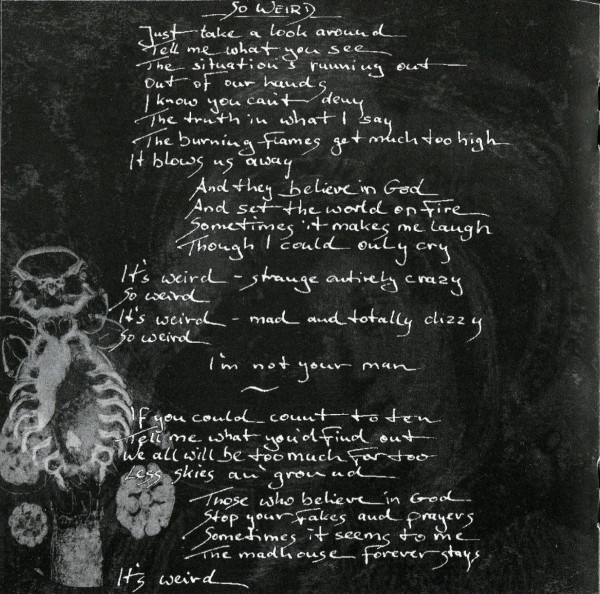 SO WEIRD
Just take a look around
Tell me what you see
The situation's running out
Out of our hands
I know you can't deny
The truth in what I say
The burning flames get much too high
It blows us away
And they believe in God
And set the world on fire
Sometimes it makes me laugh
Though I could only cry
It's weird - strange entirely crazy
So weird
It's weird - mad and totally dizzy
So weird
I'm not your man
~
If you could count to ten
Tell me what you'd find out
We all will be too much far too
Less skies an' ground
Those who believe in God
Stop your fakes and prayers
Sometimes it seems to me
The madhouse forever stays
It's weird